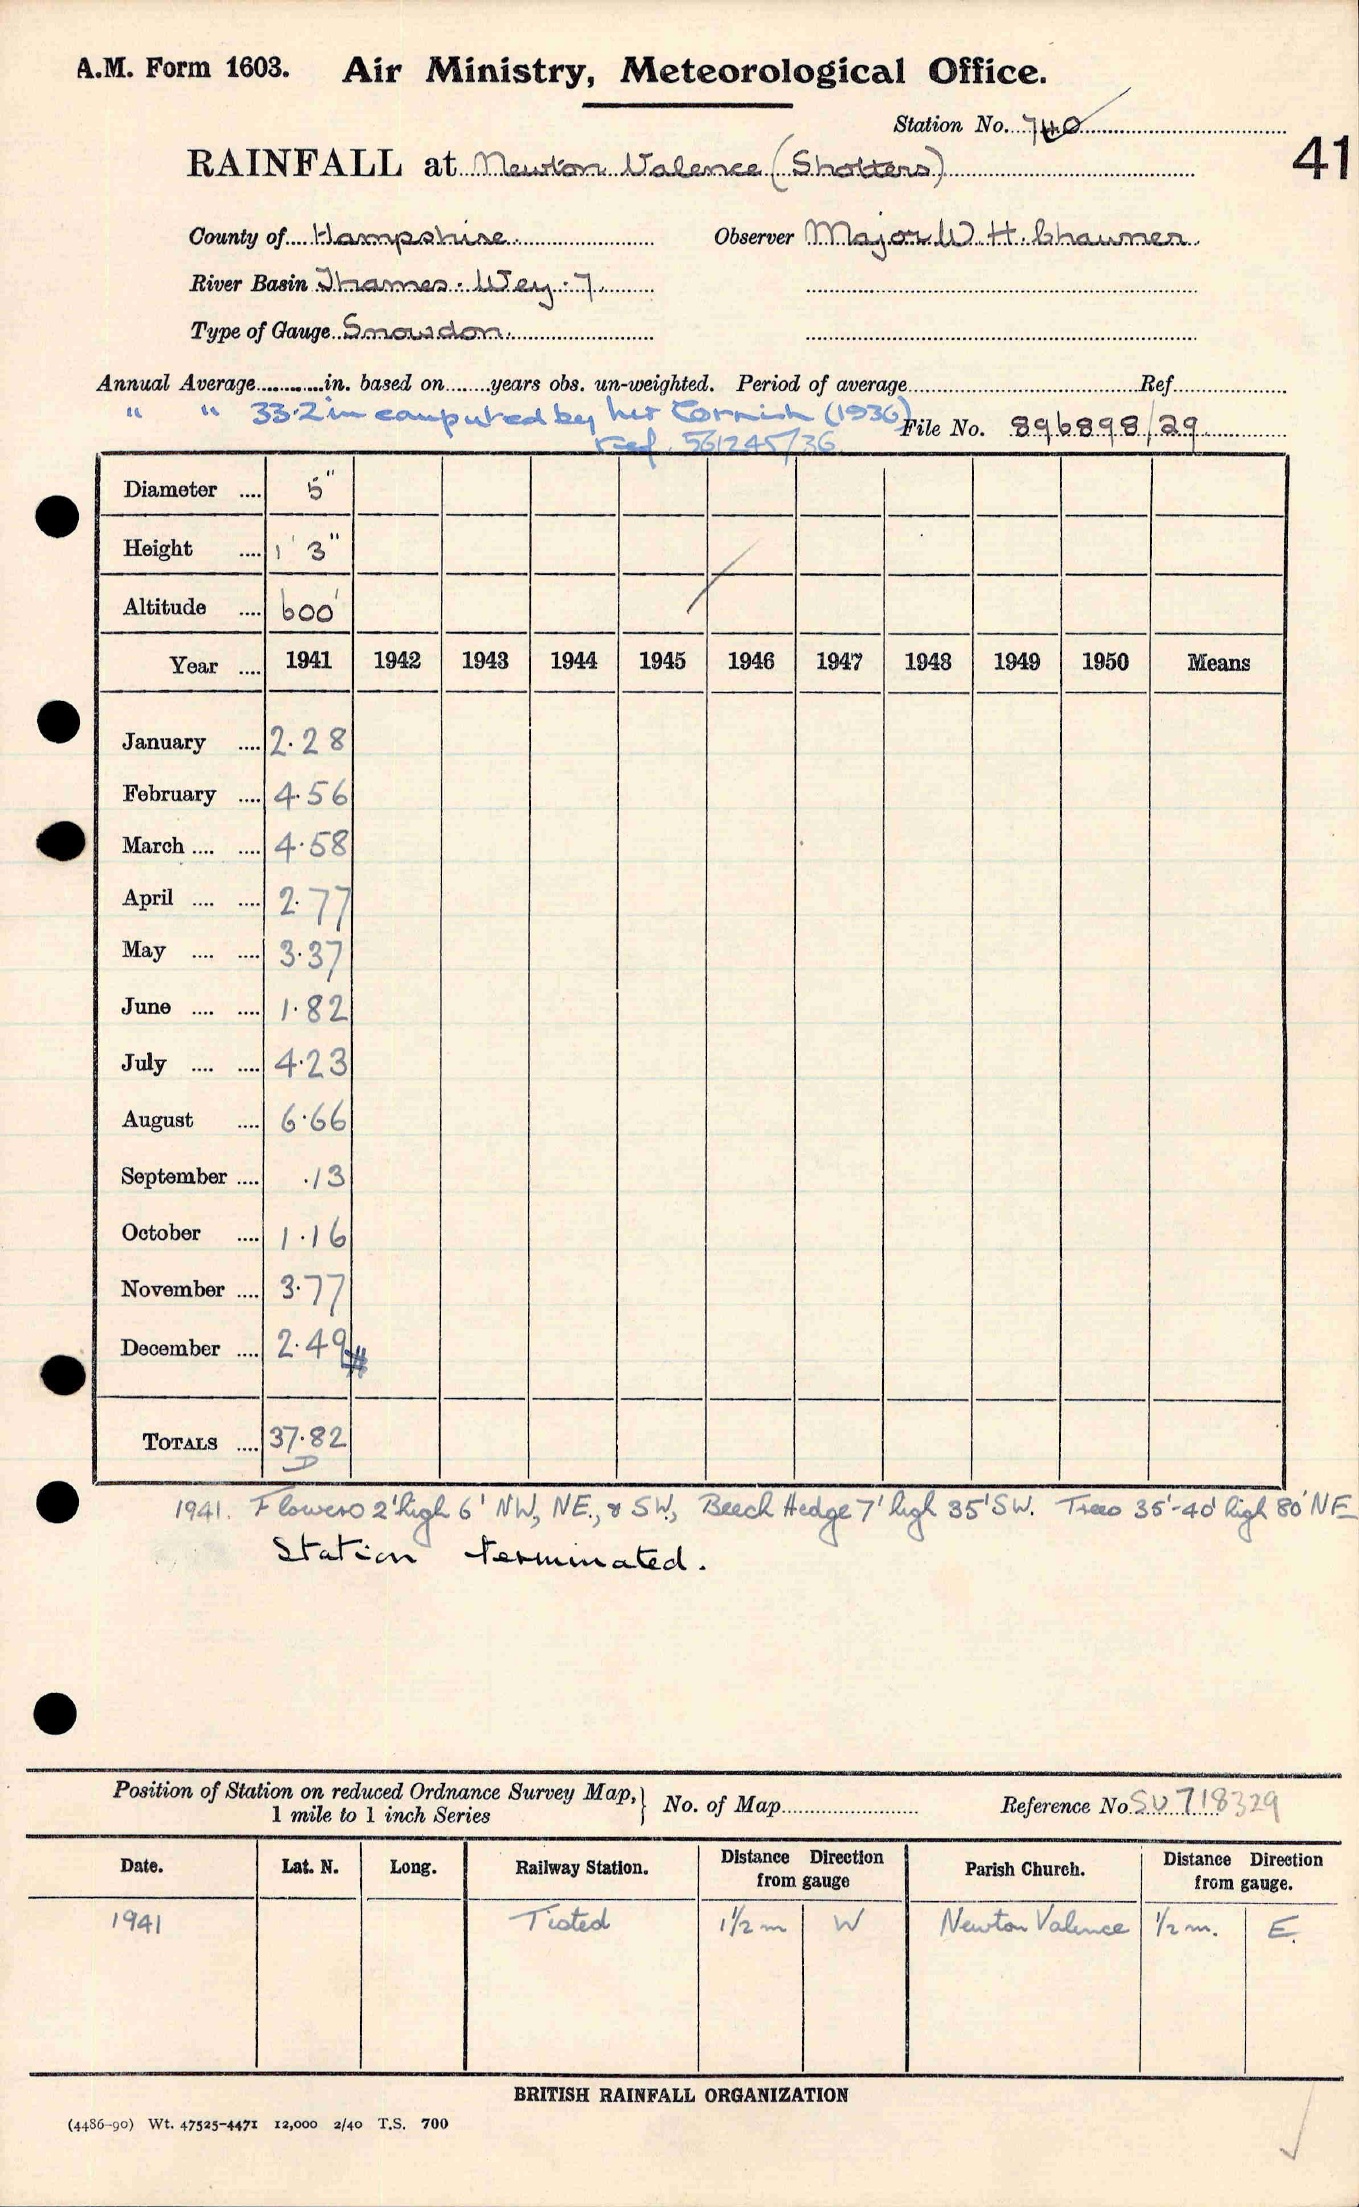 A.M. Form 1603. Air Ministry, Meteorological Office.
Station No. 740
41
RAINFALL at Newton Valence (Shotters)
County of Hampshire. Observer Major W. H. Chawner.
River Basin Thames. Wey. 7.
Type of Gauge Snowdon.
Annual Average in. based on years obs. un-weighted. Period of average Ref
" " 33.2 in computed by Cornish (1936)
File No. 896898/29
Ref. 561245/36
Diameter .... 5"
Height .... 1' 3"
Altitude .... 600'
Year .... 1941 1942 1943 1944 1945 1946 1947 1948 1949 1950 Means
January .... 2.28
February .... 4.56
March .... .... 4.58
April .... .... 2.77
May .... .... 3.37
June .... .... 1.82
July .... .... 4.23
August .... 6.66
September .... .13
October .... 1.16
November .... 3.77
December .... 2.49 #
TOTALS .... 37.82
D
1941. Flowers 2' high 6' NW, NE., & SW, Beech Hedge 7' high 35' SW. Trees 35'-40' high 80' NE
Station terminated.
Position of Station on reduced Ordnance Survey Map, } No. of Map Reference No. SU 718329
1 mile to 1 inch Series
Date. Lat. N. Long. Railway Station. Distance Direction from gauge Parish Church. Distance Direction from gauge.
1941 Tisted 1 1/2 m W Newton Valence 1/2 m. E.
BRITISH RAINFALL ORGANIZATION
(4486-90) Wt. 47525-4471 12,000 2/40 T.S. 700